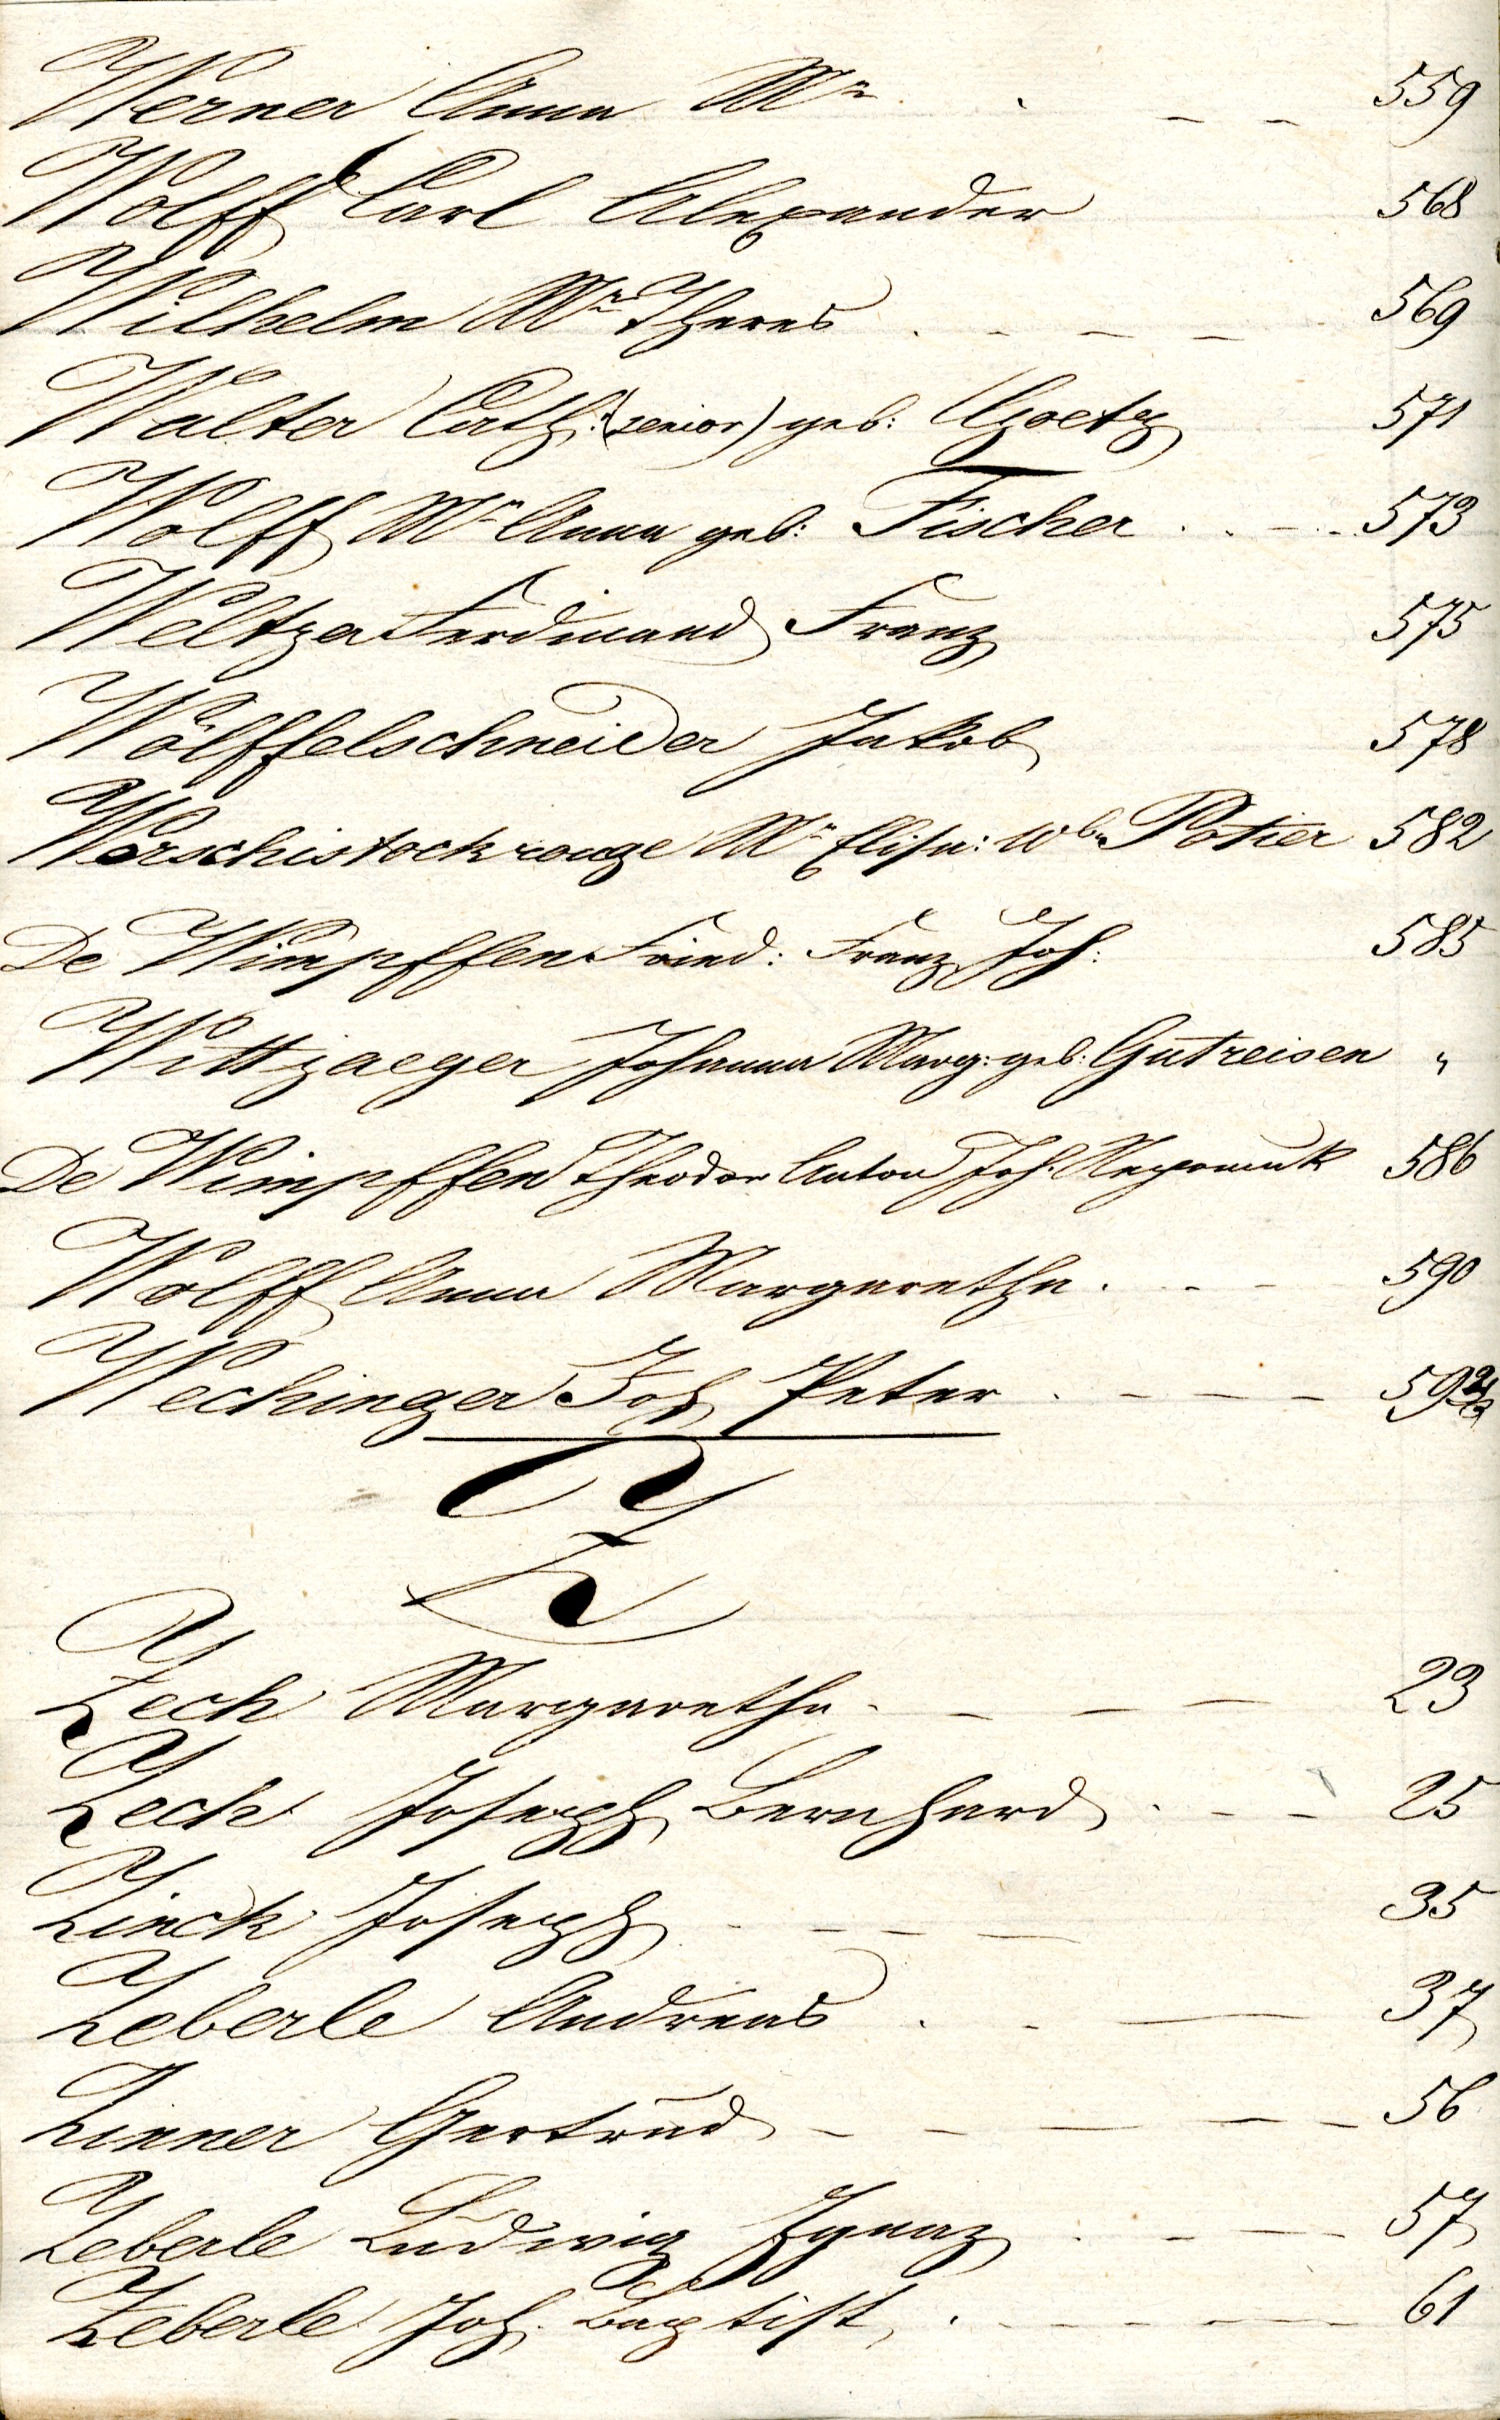 Werner Anna Mᵃ . . _ _ 559
Wolff Carl Alexander 568
Wilhelm Mᵃ Theres . - _ _ 569
Walter Cath: (senior) geb: Goetz 571
Wolff Mᵃ Anna geb: Fischer . . - . 573
Weltzer Ferdinand Franz 575
Wölffelschneider Jakob 578
Mᵃ Elisa: Potier 582
De Wimpffen Fried: Franz Joh: 585
Wittjaeger Johanna Marg: geb: Gutreisen "
De Wimpffen Theodor Anton Joh. Nepomuk 586
Wolff Anna Margaretha . - - 590
Wechinger Joh Peter . - - -
Z
Zech Margaretha - - - - 23
Zech Joseph Bernhard . - - 25
Zinck Joseph - - - - 35
Zeberle Andreas . - — 37
Zinner Gertrud - - — - - 56
Zeberle Ludwig Ignaz . - - - 57
Zeberle Joh. Baptist, . - - - - 61